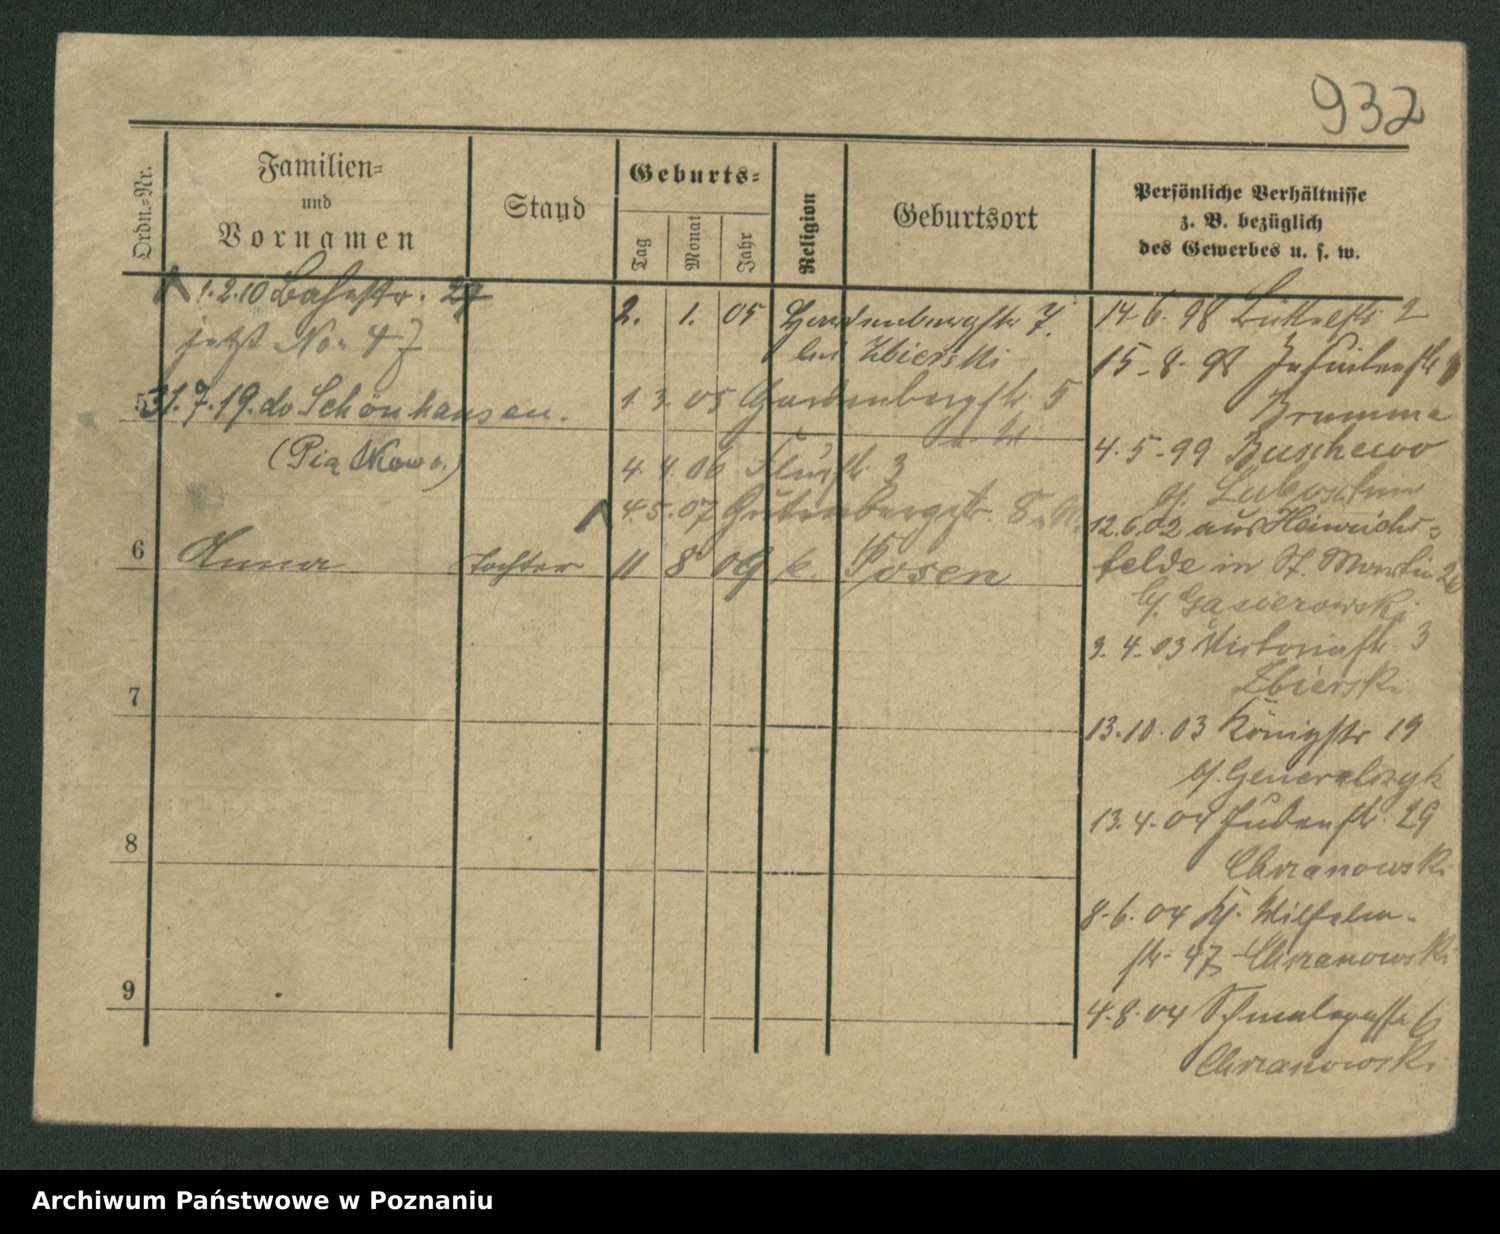 932
Ordn.-Nr.
Familien-
und
Vornamen
Stand
Geburts-
Tag
Monat
Jahr
Religion
Geburtsort
Persönliche Verhältnisse
z. B. bezüglich
des Gewerbes u. s. w.
1.2.10 Bahnstr. 27
jetzt No. 47
5
31.7.19. do Schönhausen.
(Piątkowo.)
2. 1. 05 Hardenbergstr 7.
bei Zbierski
1 3. 05 Gardenbergstr 5
4. 4. 06 Flurstr. 3
4.5.07 Gutenbergstr. 8
6 Anna Tochter 11 8 09 k. Posen
7
8
9
14 6. 98 2
15. 8. 98 Jesuitenstr
Brumma
4. 5. 99 Buschewo
12.6.02 aus Heinrichs-
felde in St. Martin 26
b/. Gąsierowski
3. 4. 03 Victoriastr. 3
Zbierski
13.10.03 Königstr 19
b/. Generalczyk
13. 4. 04 Judenstr. 29
Chrzanowski
8. 6. 04 Wilhelm-
str. 47 Chrzanowski
4. 8. 04 Schmalegasse 6
Chrzanowski
Archiwum Państwowe w Poznaniu